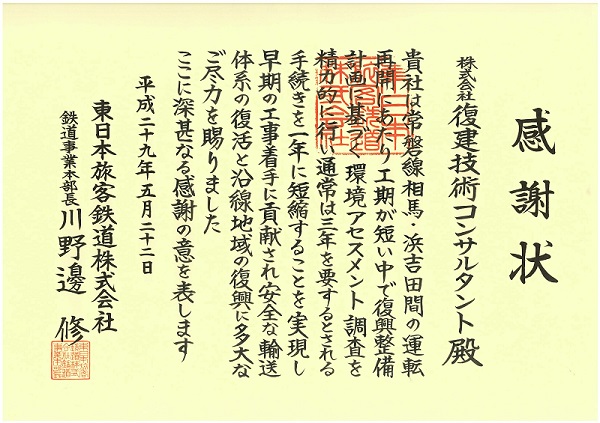 感謝状
株式会社 復建技術コンサルタント 殿
貴社は常磐線相馬・浜吉田間の運転
再開にあたり工期が短い中で復興整備
計画に基づく環境アセスメント調査を
精力的に行い通常は三年を要するとされる
手続きを一年に短縮することを実現し
早期の工事着手に貢献され安全な輸送
体系の復活と沿線地域の復興に多大な
ご尽力を賜りました
ここに深甚なる感謝の意を表します
平成二十九年五月二十二日
東日本旅客鉄道株式会社
鉄道事業本部長 川野邊 修